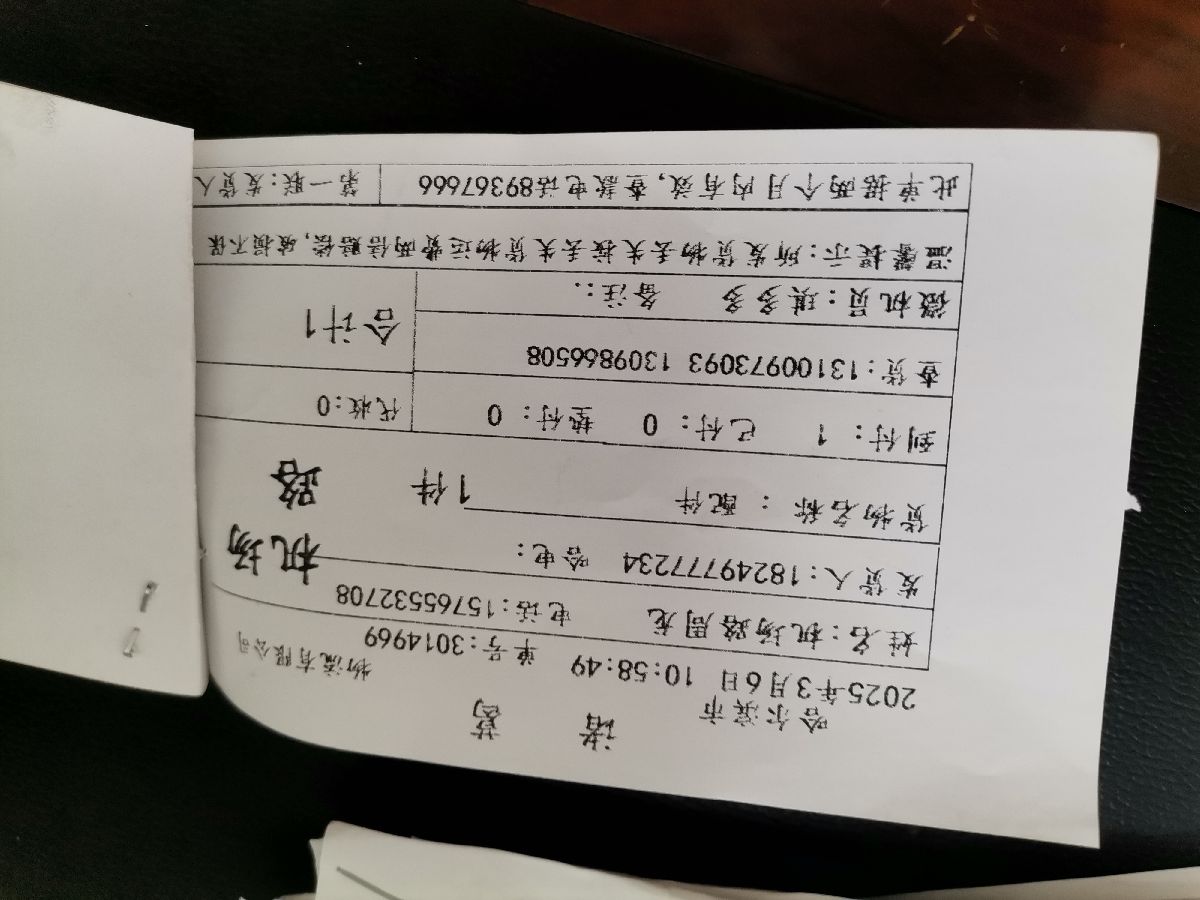 哈尔滨市 诸葛 物流有限公司
2025年3月6日 10:58:49 单号:3014969
姓名:机场路周龙 电话:15765532708
发货人:18249777234 哈电: 机场
货物名称 : 配件 1件 路
到付: 1 已付: 0 垫付: 0 代收:0
查货:13100973093 1309866508 合计1
微机员:琪多多 备注:.
温馨提示:所发货物丢失按丢失货物运费两倍赔偿,破损不保
此单据两个月内有效,查款电话89367666 第一联:发货人